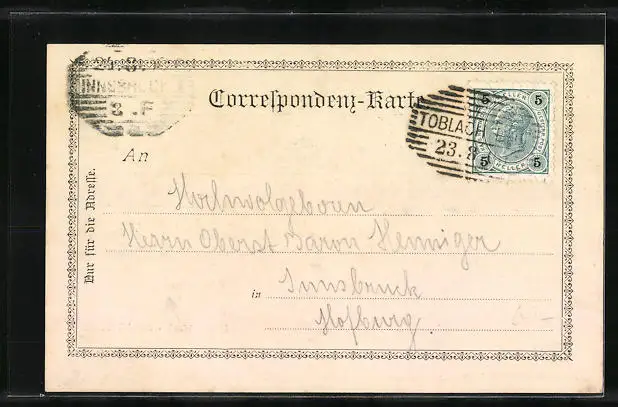 INNSBRUCK
8. F
Correspondenz-Karte
5 5
TOBLACH
23.8
HELLER
5 5
An
Nur für die Adresse.
Hochwolgeboren
Herrn Oberst Baron Henniger
in Innsbruck
Hofburg